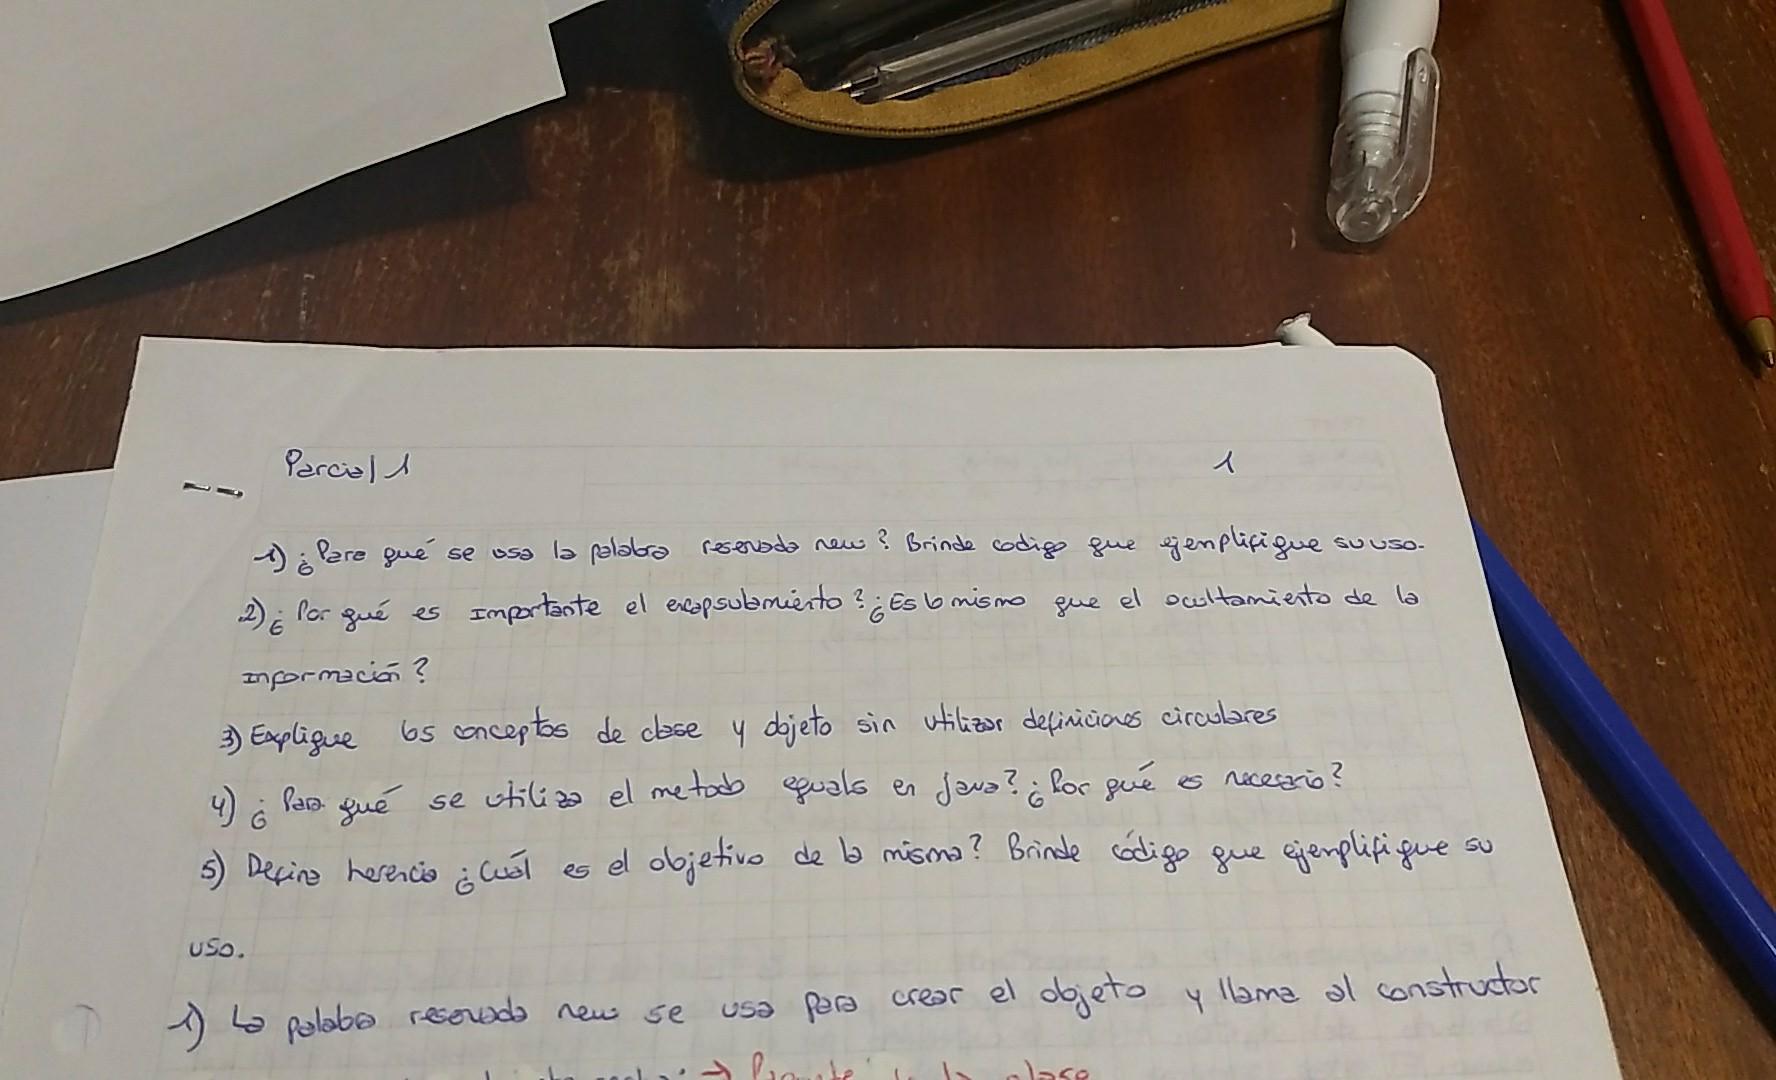 Parcial 1
1
1) ¿Para qué se usa la palabra reservada new? Brinde codigo que ejemplifique su uso.
2) ¿Por qué es importante el encapsulamiento? ¿Es lo mismo que el ocultamiento de la
información?
3) Explique los conceptos de clase y objeto sin utilizar definiciones circulares
4) ¿Para qué se utiliza el metodo equals en Java? ¿Por qué es necesario?
5) Defina herencia ¿Cuál es el objetivo de la misma? Brinde código que ejemplifique su
uso.
1) La palabra reservada new se usa para crear el objeto y llama al constructor
la clase